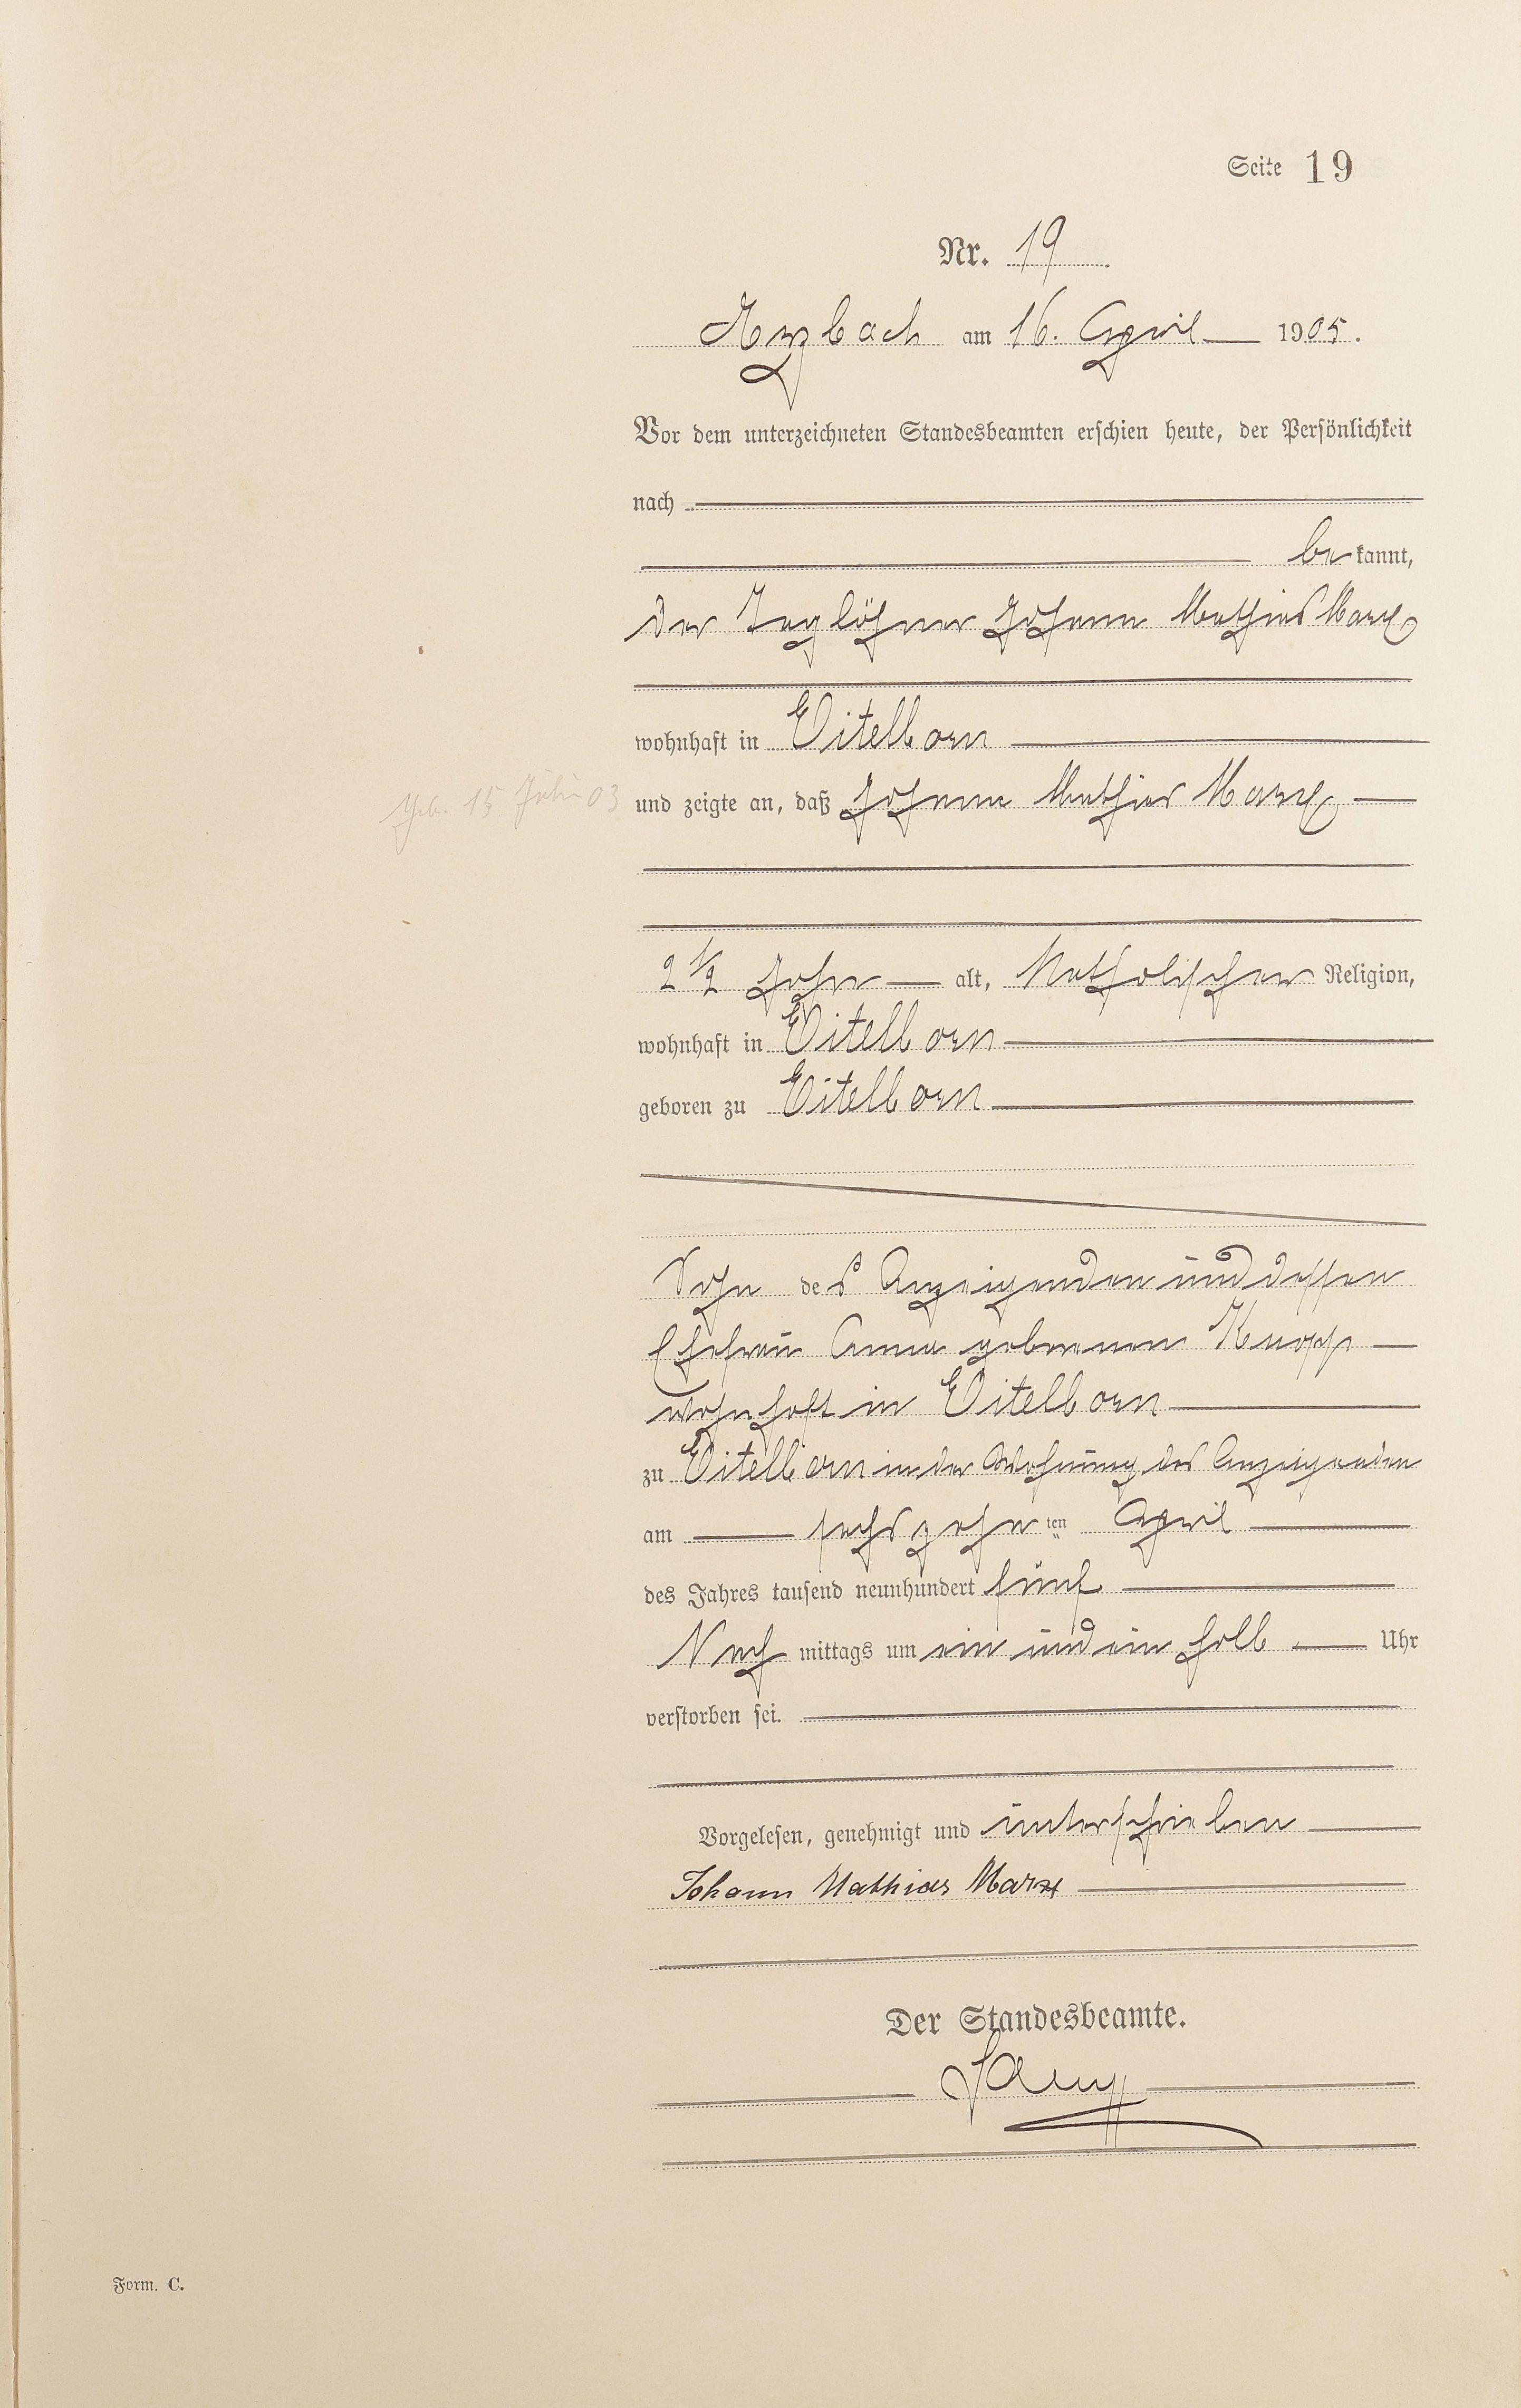 Seite 19
Nr. 19
Arzbach am 16. April 1905.
Vor dem unterzeichneten Standesbeamten erschien heute, der Persönlichkeit
nach
bekannt,
der Taglöhner Johann Mathias Marx
wohnhaft in Eitelborn
Geb. 15 03
und zeigte an, daß Johann Mathias Marx
2 1/2 Jahr alt, Katholischer Religion,
wohnhaft in Eitelborn
geboren zu Eitelborn
Sohn des Anzeigenden und dessen
Ehefrau Anna geborenen Knopp
wohnhaft in Eitelborn
zu Eitelborn in der Wohnung des Anzeigenden
am sechszehnten April
des Jahres tausend neunhundert fünf
Nachmittags um ein und ein halb Uhr
verstorben sei.
Vorgelesen, genehmigt und unterschrieben
Johann Mathias Marx
Der Standesbeamte.
Form. C.